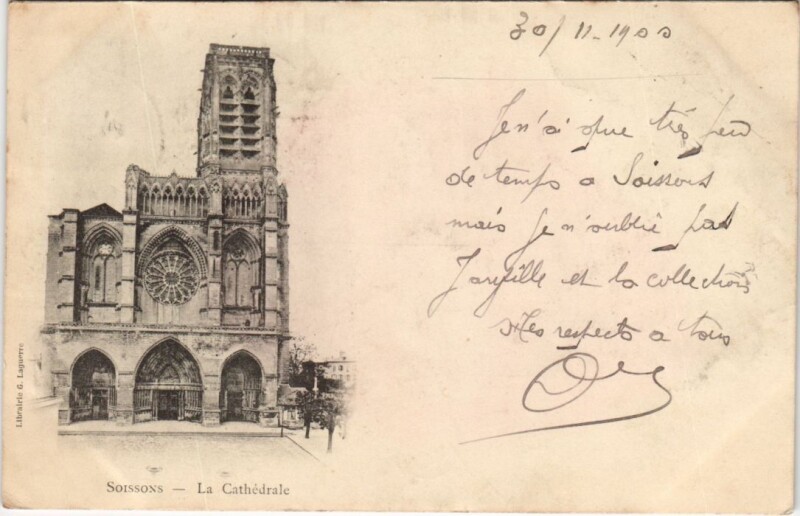 30/11-1900
Je n'ai que très peu
de temps a Soissons
mais je n'oublie pas
et la collection
Mes respects a tous
Librairie G. Laguerre
SOISSONS — La Cathédrale